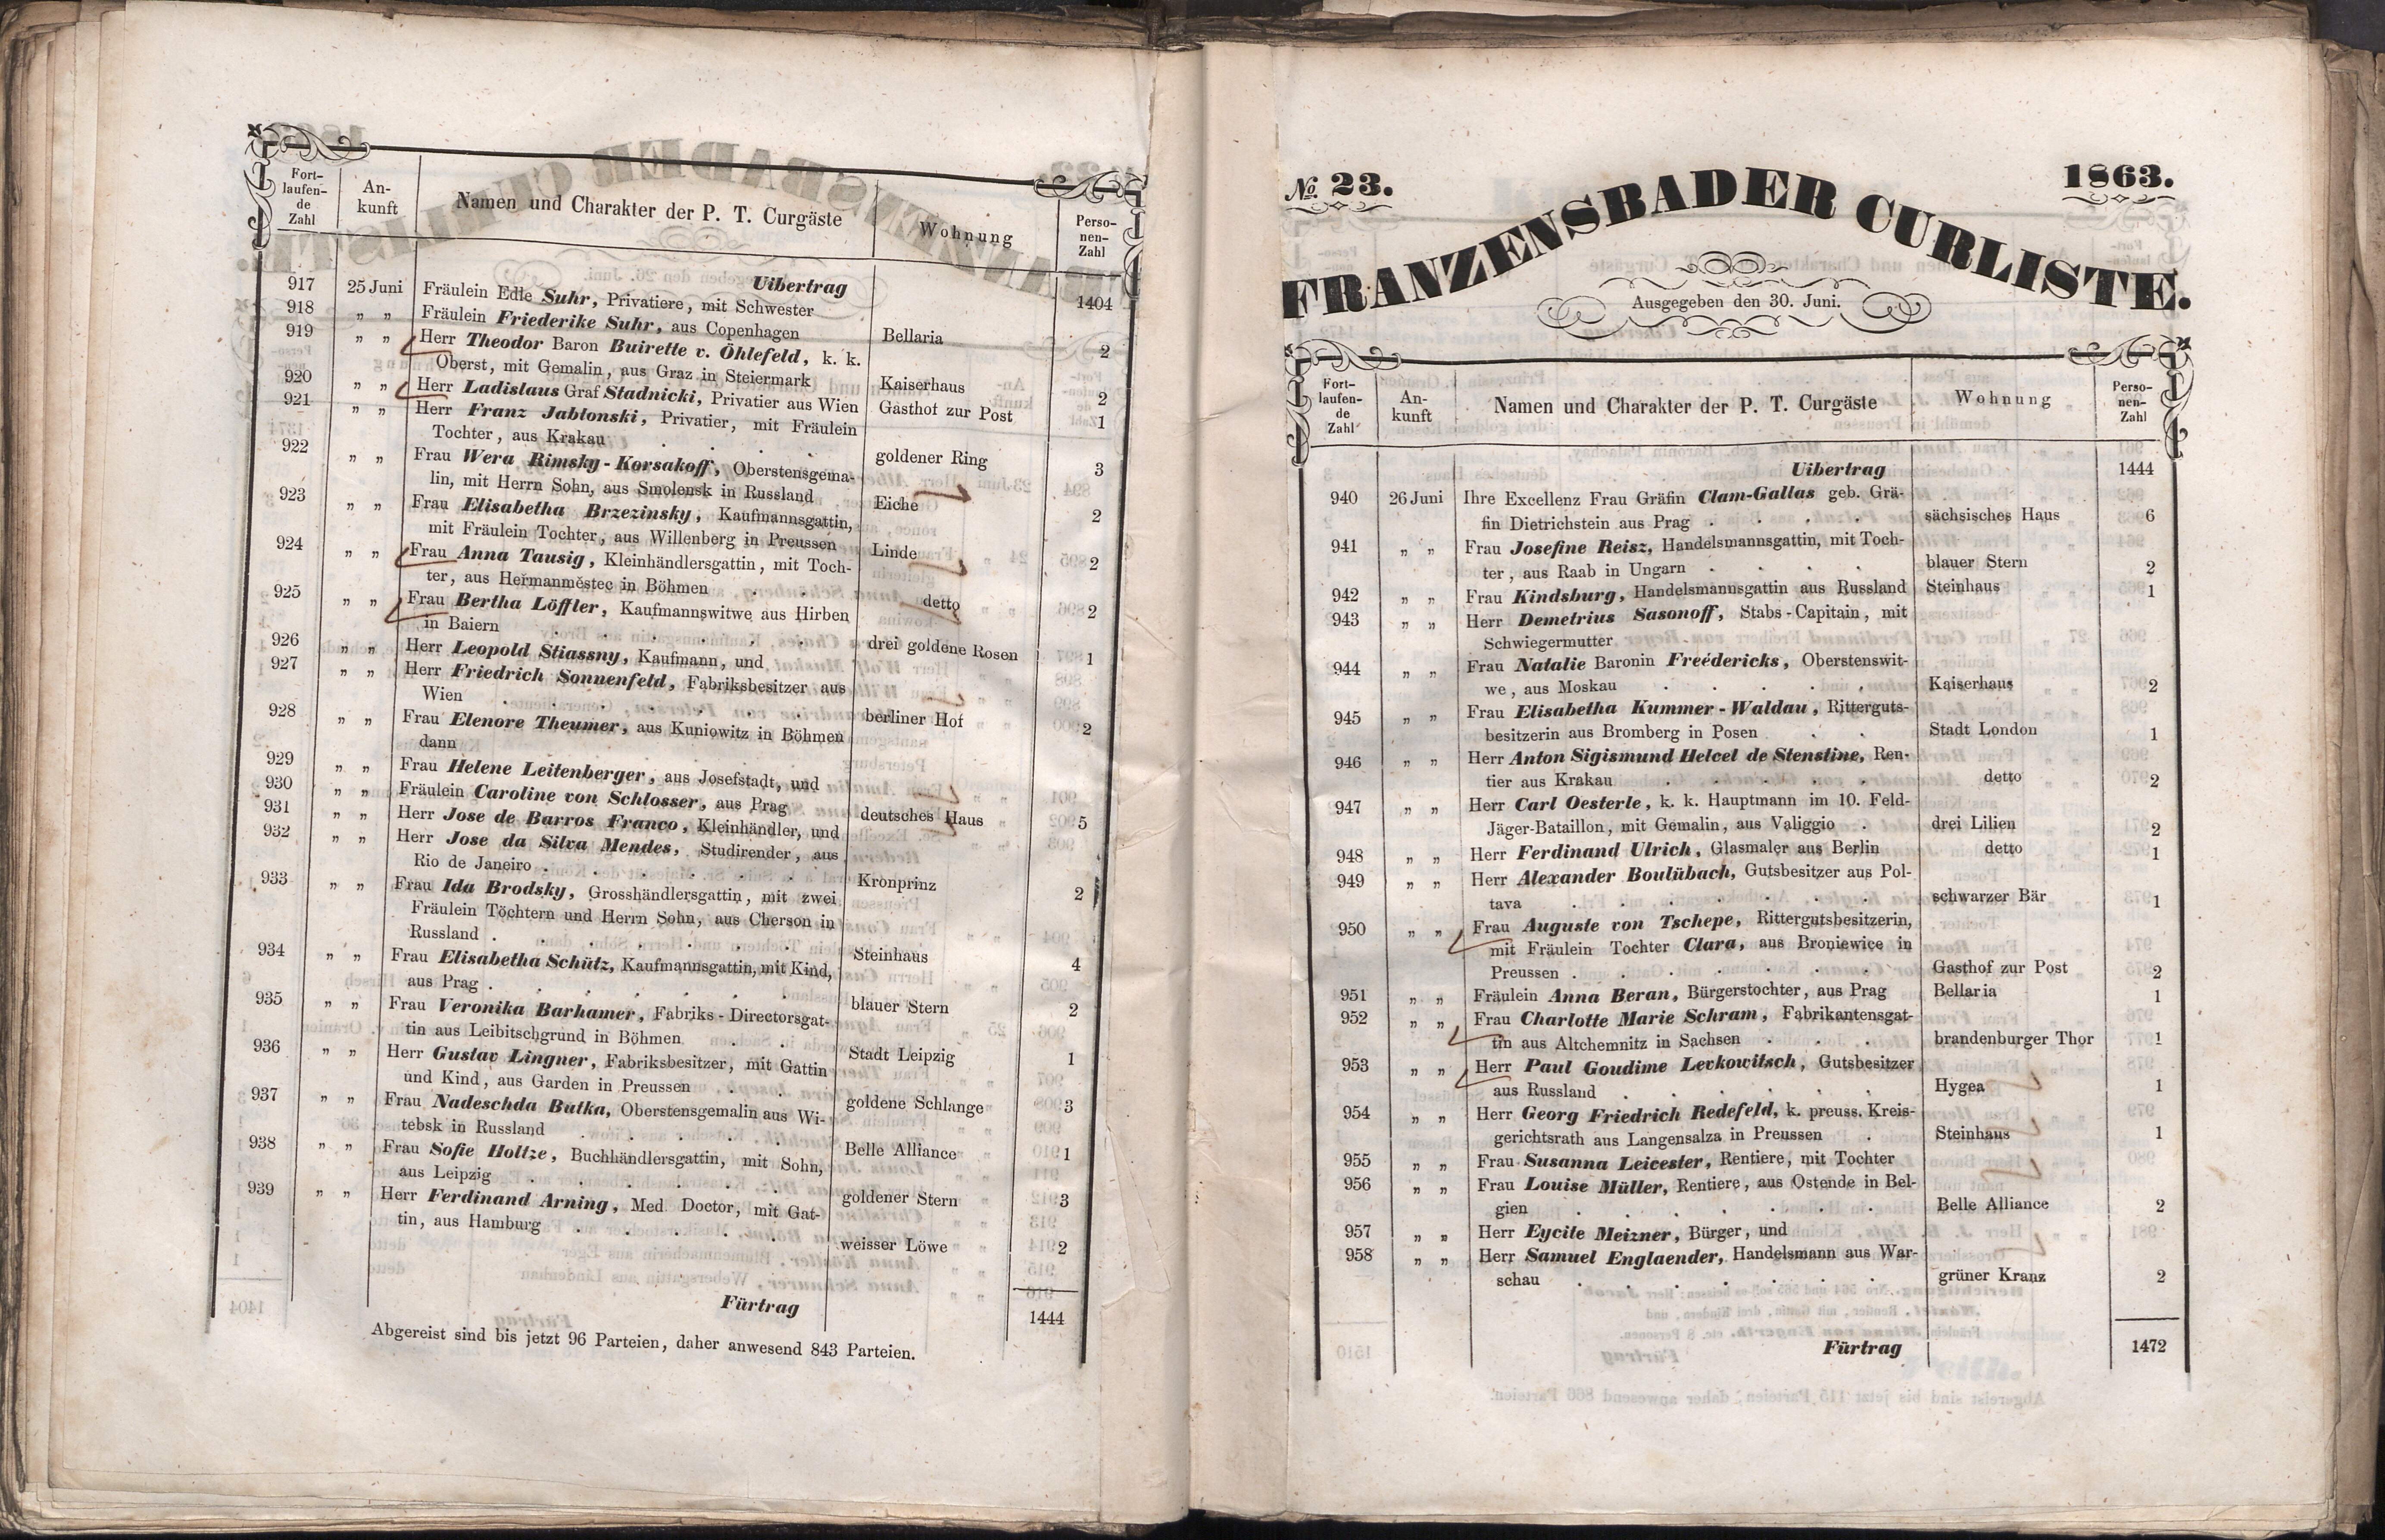 Fort-
laufen-
de
Zahl
An-
kunft
Namen und Charakter der P. T. Curgäste
Wohnung
Perso-
nen-
Zahl
Uibertrag 1404
917 25 Juni Fräulein Edle Suhr, Privatiere, mit Schwester
918 „ „ Fräulein Friederike Suhr, aus Copenhagen Bellaria 2
919 „ „ Herr Theodor Baron Buirette v. Öhlefeld, k. k.
Oberst, mit Gemalin, aus Graz in Steiermark Kaiserhaus 2
920 „ „ Herr Ladislaus Graf Stadnicki, Privatier aus Wien Gasthof zur Post 1
921 „ „ Herr Franz Jablonski, Privatier, mit Fräulein
Tochter, aus Krakau . . . goldener Ring 3
922 „ „ Frau Wera Rimsky-Korsakoff, Oberstensgema-
lin, mit Herrn Sohn, aus Smolensk in Russland Eiche 2
923 „ „ Frau Elisabetha Brzezinsky, Kaufmannsgattin,
mit Fräulein Tochter, aus Willenberg in Preussen Linde 2
924 „ „ Frau Anna Tausig, Kleinhändlersgattin, mit Toch-
ter, aus Heřmanměstec in Böhmen . . detto 2
925 „ „ Frau Bertha Löffler, Kaufmannswitwe aus Hirben
in Baiern . . . . . . drei goldene Rosen 1
926 „ „ Herr Leopold Stiassny, Kaufmann, und
927 „ „ Herr Friedrich Sonnenfeld, Fabriksbesitzer aus
Wien . . . . . . . berliner Hof 2
928 „ „ Frau Elenore Theumer, aus Kuniowitz in Böhmen
dann
929 „ „ Frau Helene Leitenberger, aus Josefstadt, und
930 „ „ Fräulein Caroline von Schlosser, aus Prag deutsches Haus 5
931 „ „ Herr Jose de Barros Franco, Kleinhändler, und
932 „ „ Herr Jose da Silva Mendes, Studirender, aus
Rio de Janeiro . . . . . . Kronprinz 2
933 „ „ Frau Ida Brodsky, Grosshändlersgattin, mit zwei
Fräulein Töchtern und Herrn Sohn, aus Cherson in
Russland . . . . . . . Steinhaus 4
934 „ „ Frau Elisabetha Schütz, Kaufmannsgattin, mit Kind,
aus Prag . . . . . . . blauer Stern 2
935 „ „ Frau Veronika Barhamer, Fabriks-Directorsgat-
tin aus Leibitschgrund in Böhmen . . Stadt Leipzig 1
936 „ „ Herr Gustav Lingner, Fabriksbesitzer, mit Gattin
und Kind, aus Garden in Preussen . . goldene Schlange 3
937 „ „ Frau Nadeschda Butka, Oberstensgemalin aus Wi-
tebsk in Russland . . . . . Belle Alliance 1
938 „ „ Frau Sofie Holtze, Buchhändlersgattin, mit Sohn,
aus Leipzig . . . . . . goldener Stern 3
939 „ „ Herr Ferdinand Arning, Med. Doctor, mit Gat-
tin, aus Hamburg . . . . . weisser Löwe 2
Fürtrag 1444
Abgereist sind bis jetzt 96 Parteien, daher anwesend 843 Parteien.
No. 23. 1863.
FRANZENSBADER CURLISTE.
Ausgegeben den 30. Juni.
Fort-
laufen-
de
Zahl
An-
kunft
Namen und Charakter der P. T. Curgäste
Wohnung
Perso-
nen-
Zahl
Uibertrag 1444
940 26 Juni Ihre Excellenz Frau Gräfin Clam-Gallas geb. Grä-
fin Dietrichstein aus Prag . . . . sächsisches Haus 6
941 „ „ Frau Josefine Reisz, Handelsmannsgattin, mit Toch-
ter, aus Raab in Ungarn . . . . blauer Stern 2
942 „ „ Frau Kindsburg, Handelsmannsgattin aus Russland Steinhaus 1
943 „ „ Herr Demetrius Sasonoff, Stabs-Capitain, mit
Schwiegermutter
944 „ „ Frau Natalie Baronin Freédericks, Oberstenswit-
we, aus Moskau . . . . . Kaiserhaus 2
945 „ „ Frau Elisabetha Kummer-Waldau, Ritterguts-
besitzerin aus Bromberg in Posen . . Stadt London 1
946 „ „ Herr Anton Sigismund Helcel de Stenstine, Ren-
tier aus Krakau . . . . . detto 2
947 „ „ Herr Carl Oesterle, k. k. Hauptmann im 10. Feld-
Jäger-Bataillon, mit Gemalin, aus Valiggio . drei Lilien 2
948 „ „ Herr Ferdinand Ulrich, Glasmaler aus Berlin detto 1
949 „ „ Herr Alexander Boulübach, Gutsbesitzer aus Pol-
tava . . . . . . . schwarzer Bär 1
950 „ „ Frau Auguste von Tschepe, Rittergutsbesitzerin,
mit Fräulein Tochter Clara, aus Broniewice in
Preussen . . . . . . . Gasthof zur Post 2
951 „ „ Fräulein Anna Beran, Bürgerstochter, aus Prag Bellaria 1
952 „ „ Frau Charlotte Marie Schram, Fabrikantensgat-
tin aus Altchemnitz in Sachsen . . . brandenburger Thor 1
953 „ „ Herr Paul Goudime Levkowitsch, Gutsbesitzer
aus Russland . . . . . . Hygea 1
954 „ „ Herr Georg Friedrich Redefeld, k. preuss. Kreis-
gerichtsrath aus Langensalza in Preussen . Steinhaus 1
955 „ „ Frau Susanna Leicester, Rentiere, mit Tochter
956 „ „ Frau Louise Müller, Rentiere, aus Ostende in Bel-
gien . . . . . . . Belle Alliance 2
957 „ „ Herr Eycite Meizner, Bürger, und
958 „ „ Herr Samuel Englaender, Handelsmann aus War-
schau . . . . . . . grüner Kranz 2
Fürtrag 1472